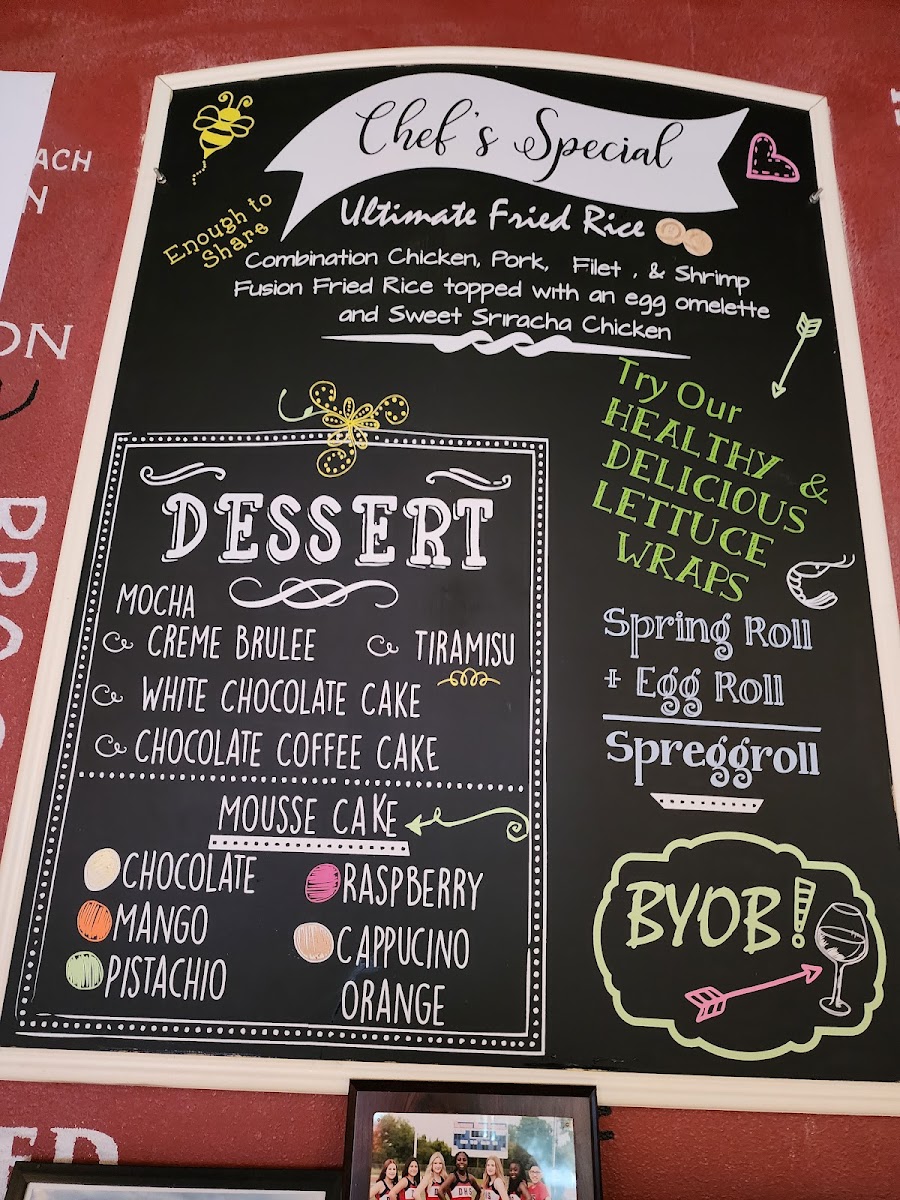 Chef's Special
Enough to
Share
Ultimate Fried Rice
Combination Chicken, Pork, Filet , & Shrimp
Fusion Fried Rice topped with an egg omelette
and Sweet Sriracha Chicken
Try Our
HEALTHY &
DELICIOUS
LETTUCE
WRAPS
Spring Roll
+ Egg Roll
Spreggroll
BYOB!
DESSERT
MOCHA
CREME BRULEE
TIRAMISU
WHITE CHOCOLATE CAKE
CHOCOLATE COFFEE CAKE
MOUSSE CAKE
CHOCOLATE
RASPBERRY
MANGO
CAPPUCINO
PISTACHIO
ORANGE
ACH
N
ON
DHS